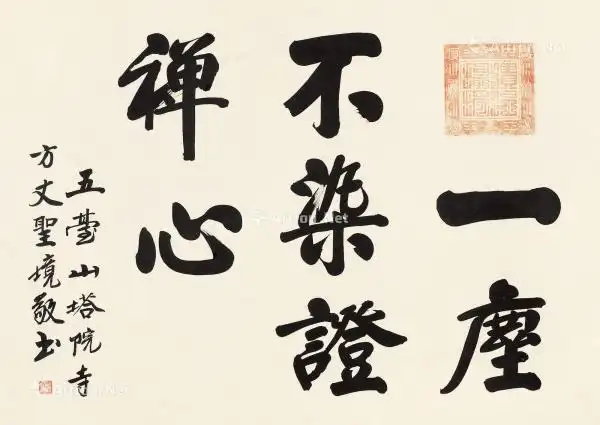 一塵
不染證
禪心
五臺山塔院寺
方丈聖境敬書